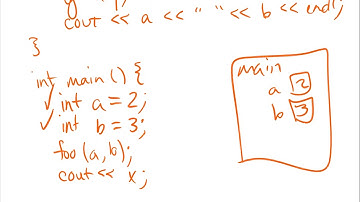 cout << a << " " << b << endl;
}
int main () {
int a = 2;
int b = 3;
foo (a, b);
cout << x;
main
a 2
b 3